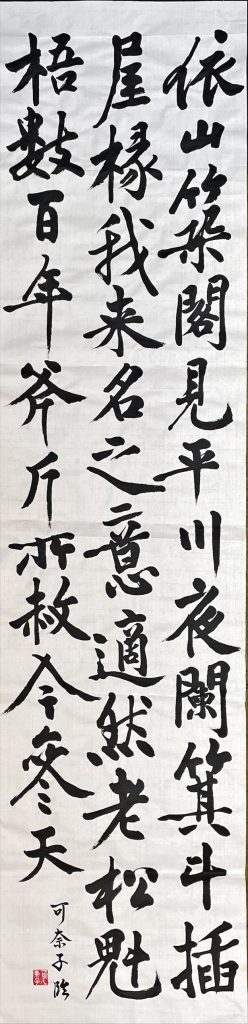 依山築閣見平川夜闌箕斗插
屋椽我来名之意適然老松魁
梧數百年斧斤所赦今参天
可奈子臨